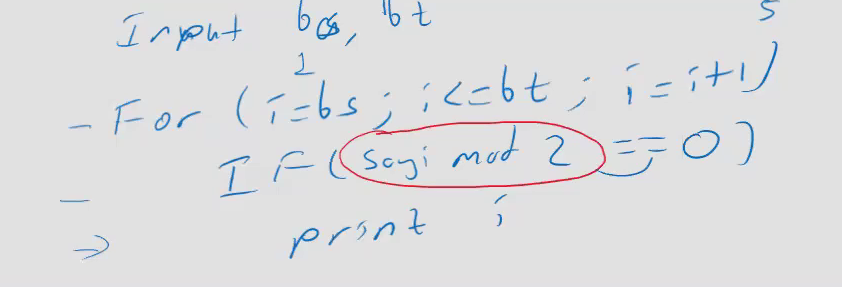 5
Input bs, bt
1
- For (i=bs; i<=bt; i=i+1)
- IF(sayi mod 2 == 0)
⇒ print i